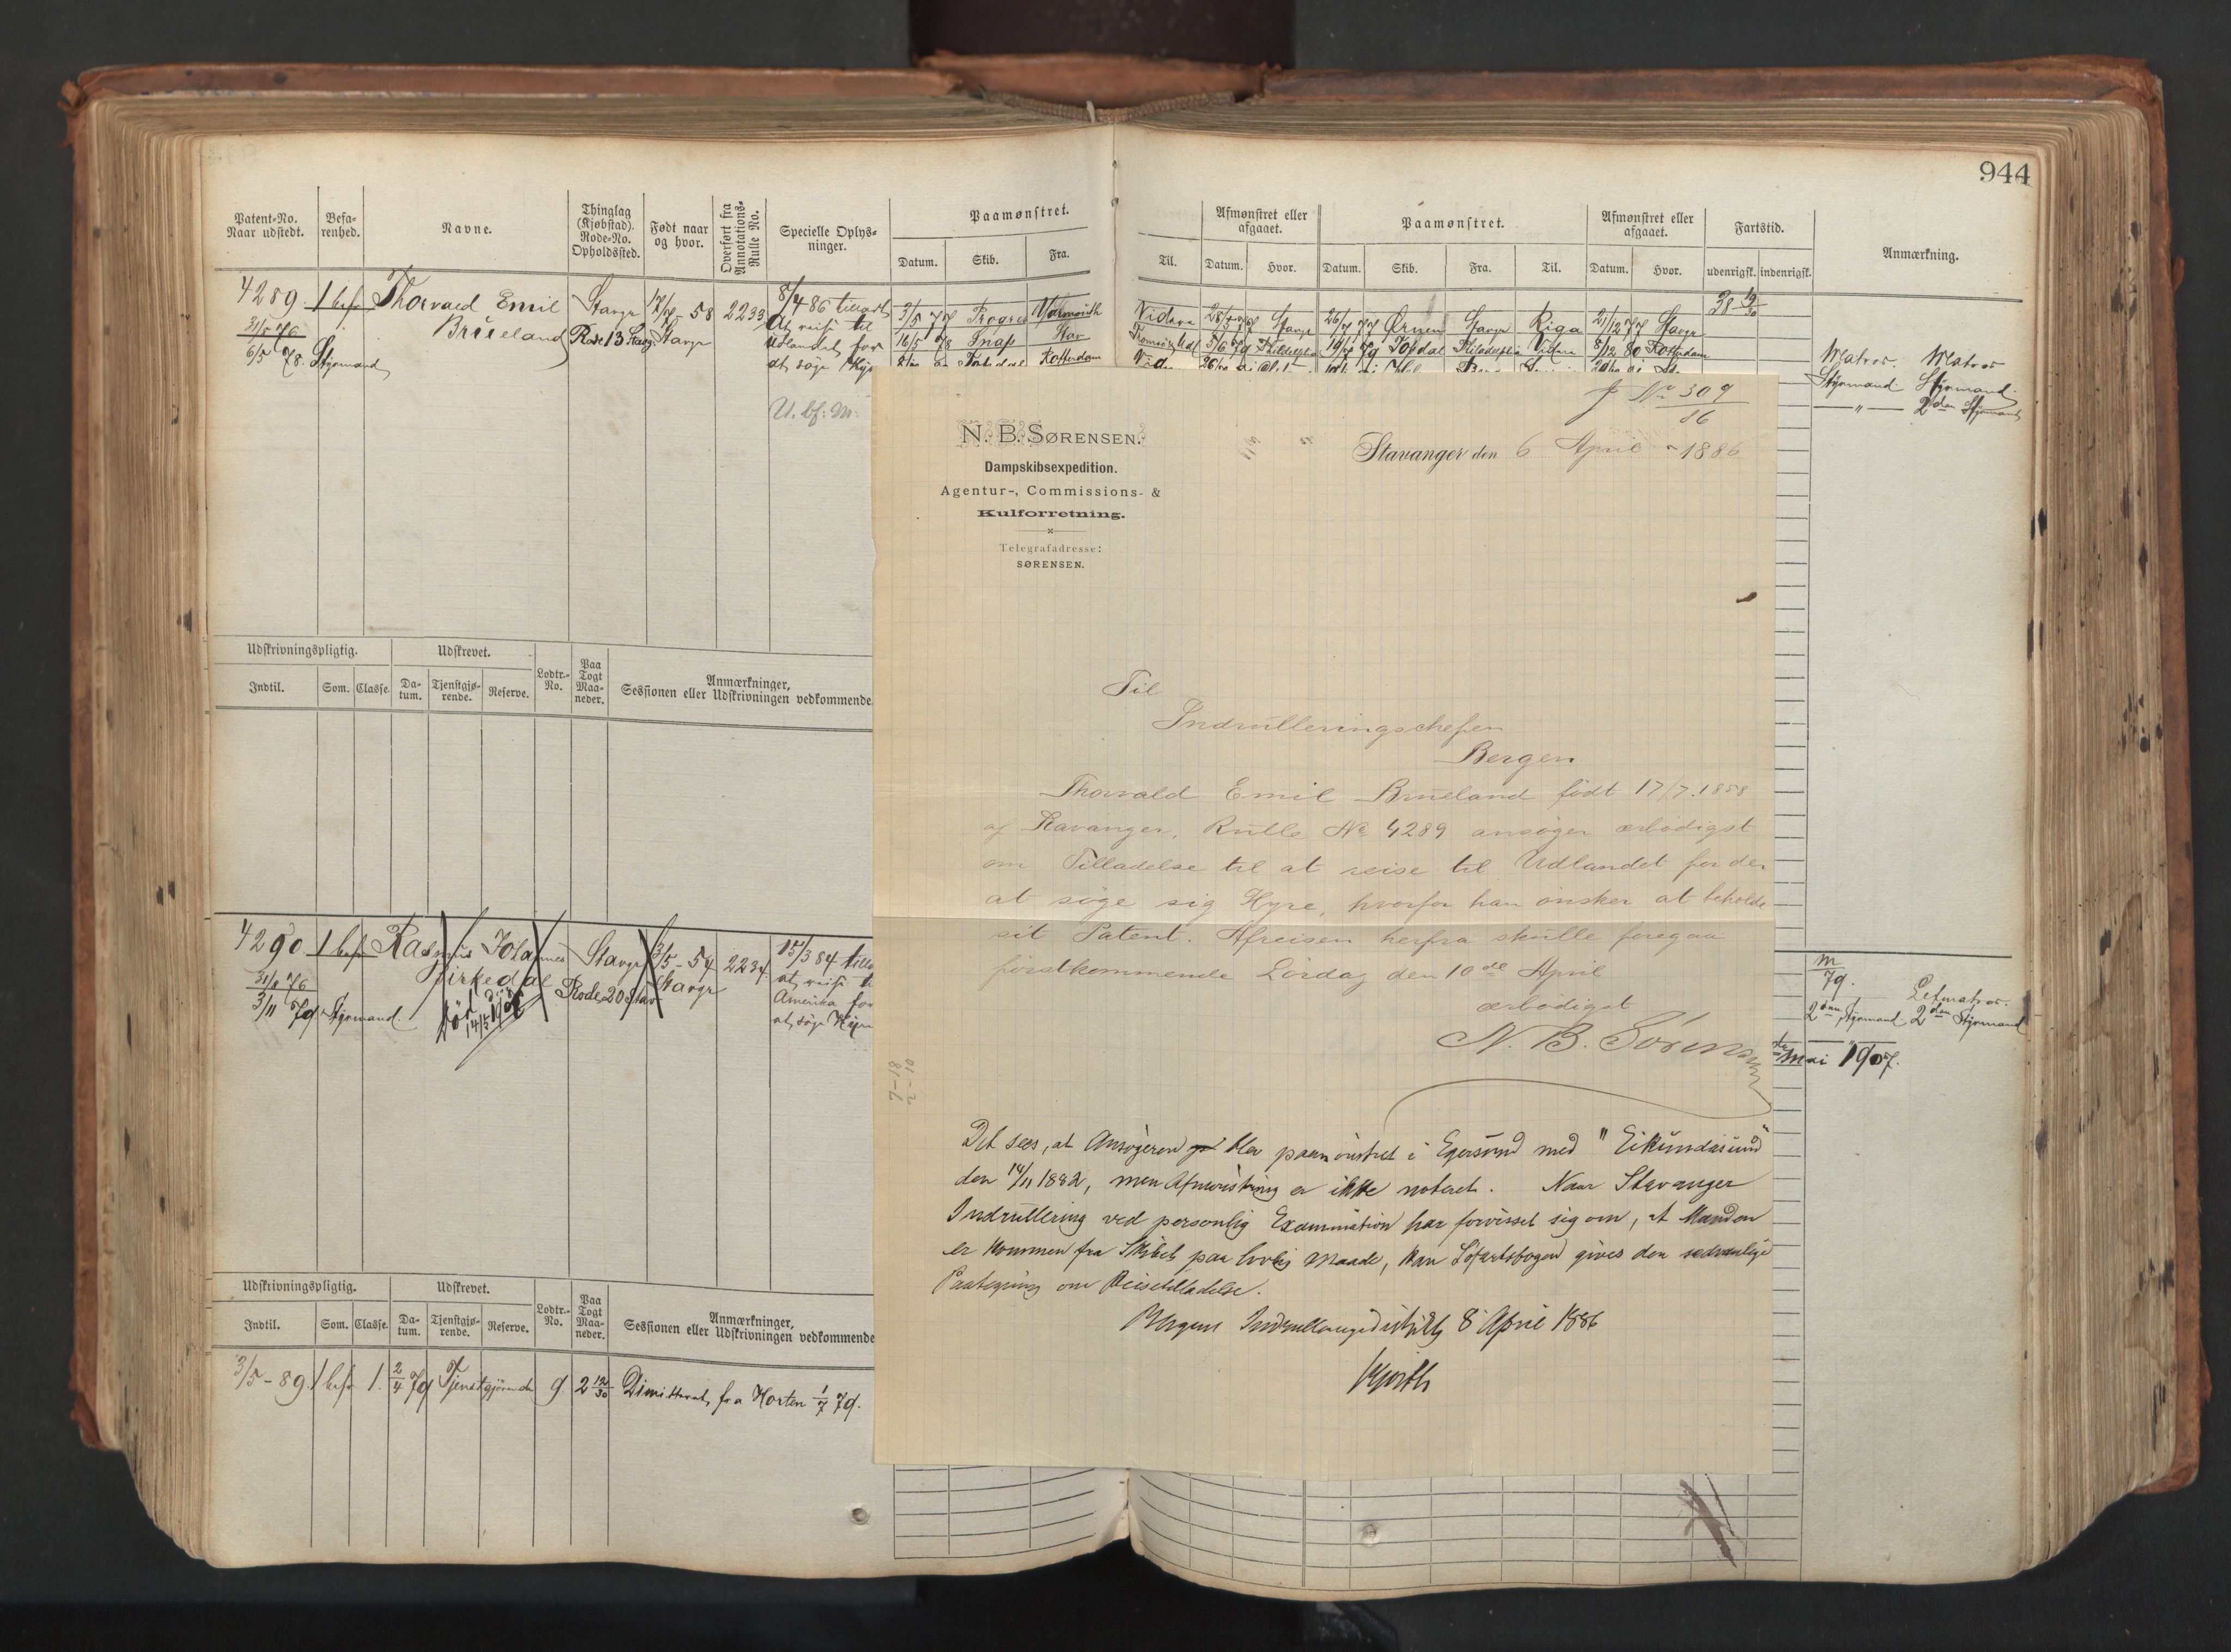 944
Patent-No. Naar udstedt.
Befarenhed.
Navne.
Thinglag (Kjøbstad). Rode-No. Opholdssted.
Født naar og hvor.
Overført fra Annotations-Rulle No.
Specielle Oplysninger.
Paamønstret.
Datum. Skib. Fra.
Til.
Afmønstret eller afgaaet.
Datum. Hvor.
Paamønstret.
Datum. Skib. Fra. Til.
Afmønstret eller afgaaet.
Datum. Hvor.
Fartstid.
udenrigsk. indenrigsk.
Anmærkning.
4289 1 bef Thorvald Emil Stavgr 17/7-58 2233 8/4 86 tilladt
31/5 76 Brueland Rode 13 Stavgr
6/5 78. Styrmand
at reise til
Udlandet for
at søge Hyr
3/5 77 Progres
16/5 78 Snap Stav
Rotterdam
Vidare 28/5 77 Stavgr 26/7 77 Ørnen Stavgr Riga 21/12 77 Stavgr
8/12 80 Rotterdam
Matros. Matros
Styrmand Styrmand
— " — 2den Styrmand
Udskrivningspligtig. Udskrevet. Lodtr.-No. Paa Togt Maaneder. Anmærkninger, Sessionen eller Udskrivningen vedkommende
Indtil. Som. Classe. Datum. Tjenstgjørende. Reserve.
4290 1 bef Rasmus Johannes Stavgr 3/5-54 2234 15/3 84
31/8 76 Birkedal Rode 20 Stav Stavgr
3/11 79 Styrmand. død
at reise
Amerika for
at søge Hyre
79. Letmatros.
2den Styrmand 2den Styrmand
mai 1907.
Udskrivningspligtig. Udskrevet. Lodtr.-No. Paa Togt Maaneder. Anmærkninger, Sessionen eller Udskrivningen vedkommende
Indtil. Som. Classe. Datum. Tjenstgjørende. Reserve.
3/5-89 1 bef 1. 2/4 79 Tjenstgjørende 9 2 12/30 Dimitteret fra Horten 1/7 79.
J No 309
86
N. B. SØRENSEN.
Dampskibsexpedition.
Agentur-, Commissions- &
Kulforretning.
Telegrafadresse:
SØRENSEN.
Stavanger den 6 April 1886
Til
Indrulleringschefen
Bergen
Thorvald Emil Brueland født 17/7. 1858
af Stavanger, Rulle No 4289 ansøger ærbødigst
om Tilladelse til at reise til Udlandet for der
at søge sig Hyre, hvorfor han ønsker at beholde
sit Patent. Afreisen herfra skulle foregaa
førstkommende Lørdag den 10de April
ærbødigst
N. B. Sørensen
7-18
2-10
Det sees, at Ansøgeren blev paamønstret i Egersund med "Eikundasund"
den 14/11 1882, men Afmønstring er ikke noteret. Naar Stavanger
Indrullering ved personlig Examination har forvisset sig om, at Manden
er kommen fra Skibet paa lovlig Maade, kan Søfartsbogen gives den sædvanlige
Paategning om Reisetilladelse.
Bergens Indrulleringsdistrikt 8 April 1886